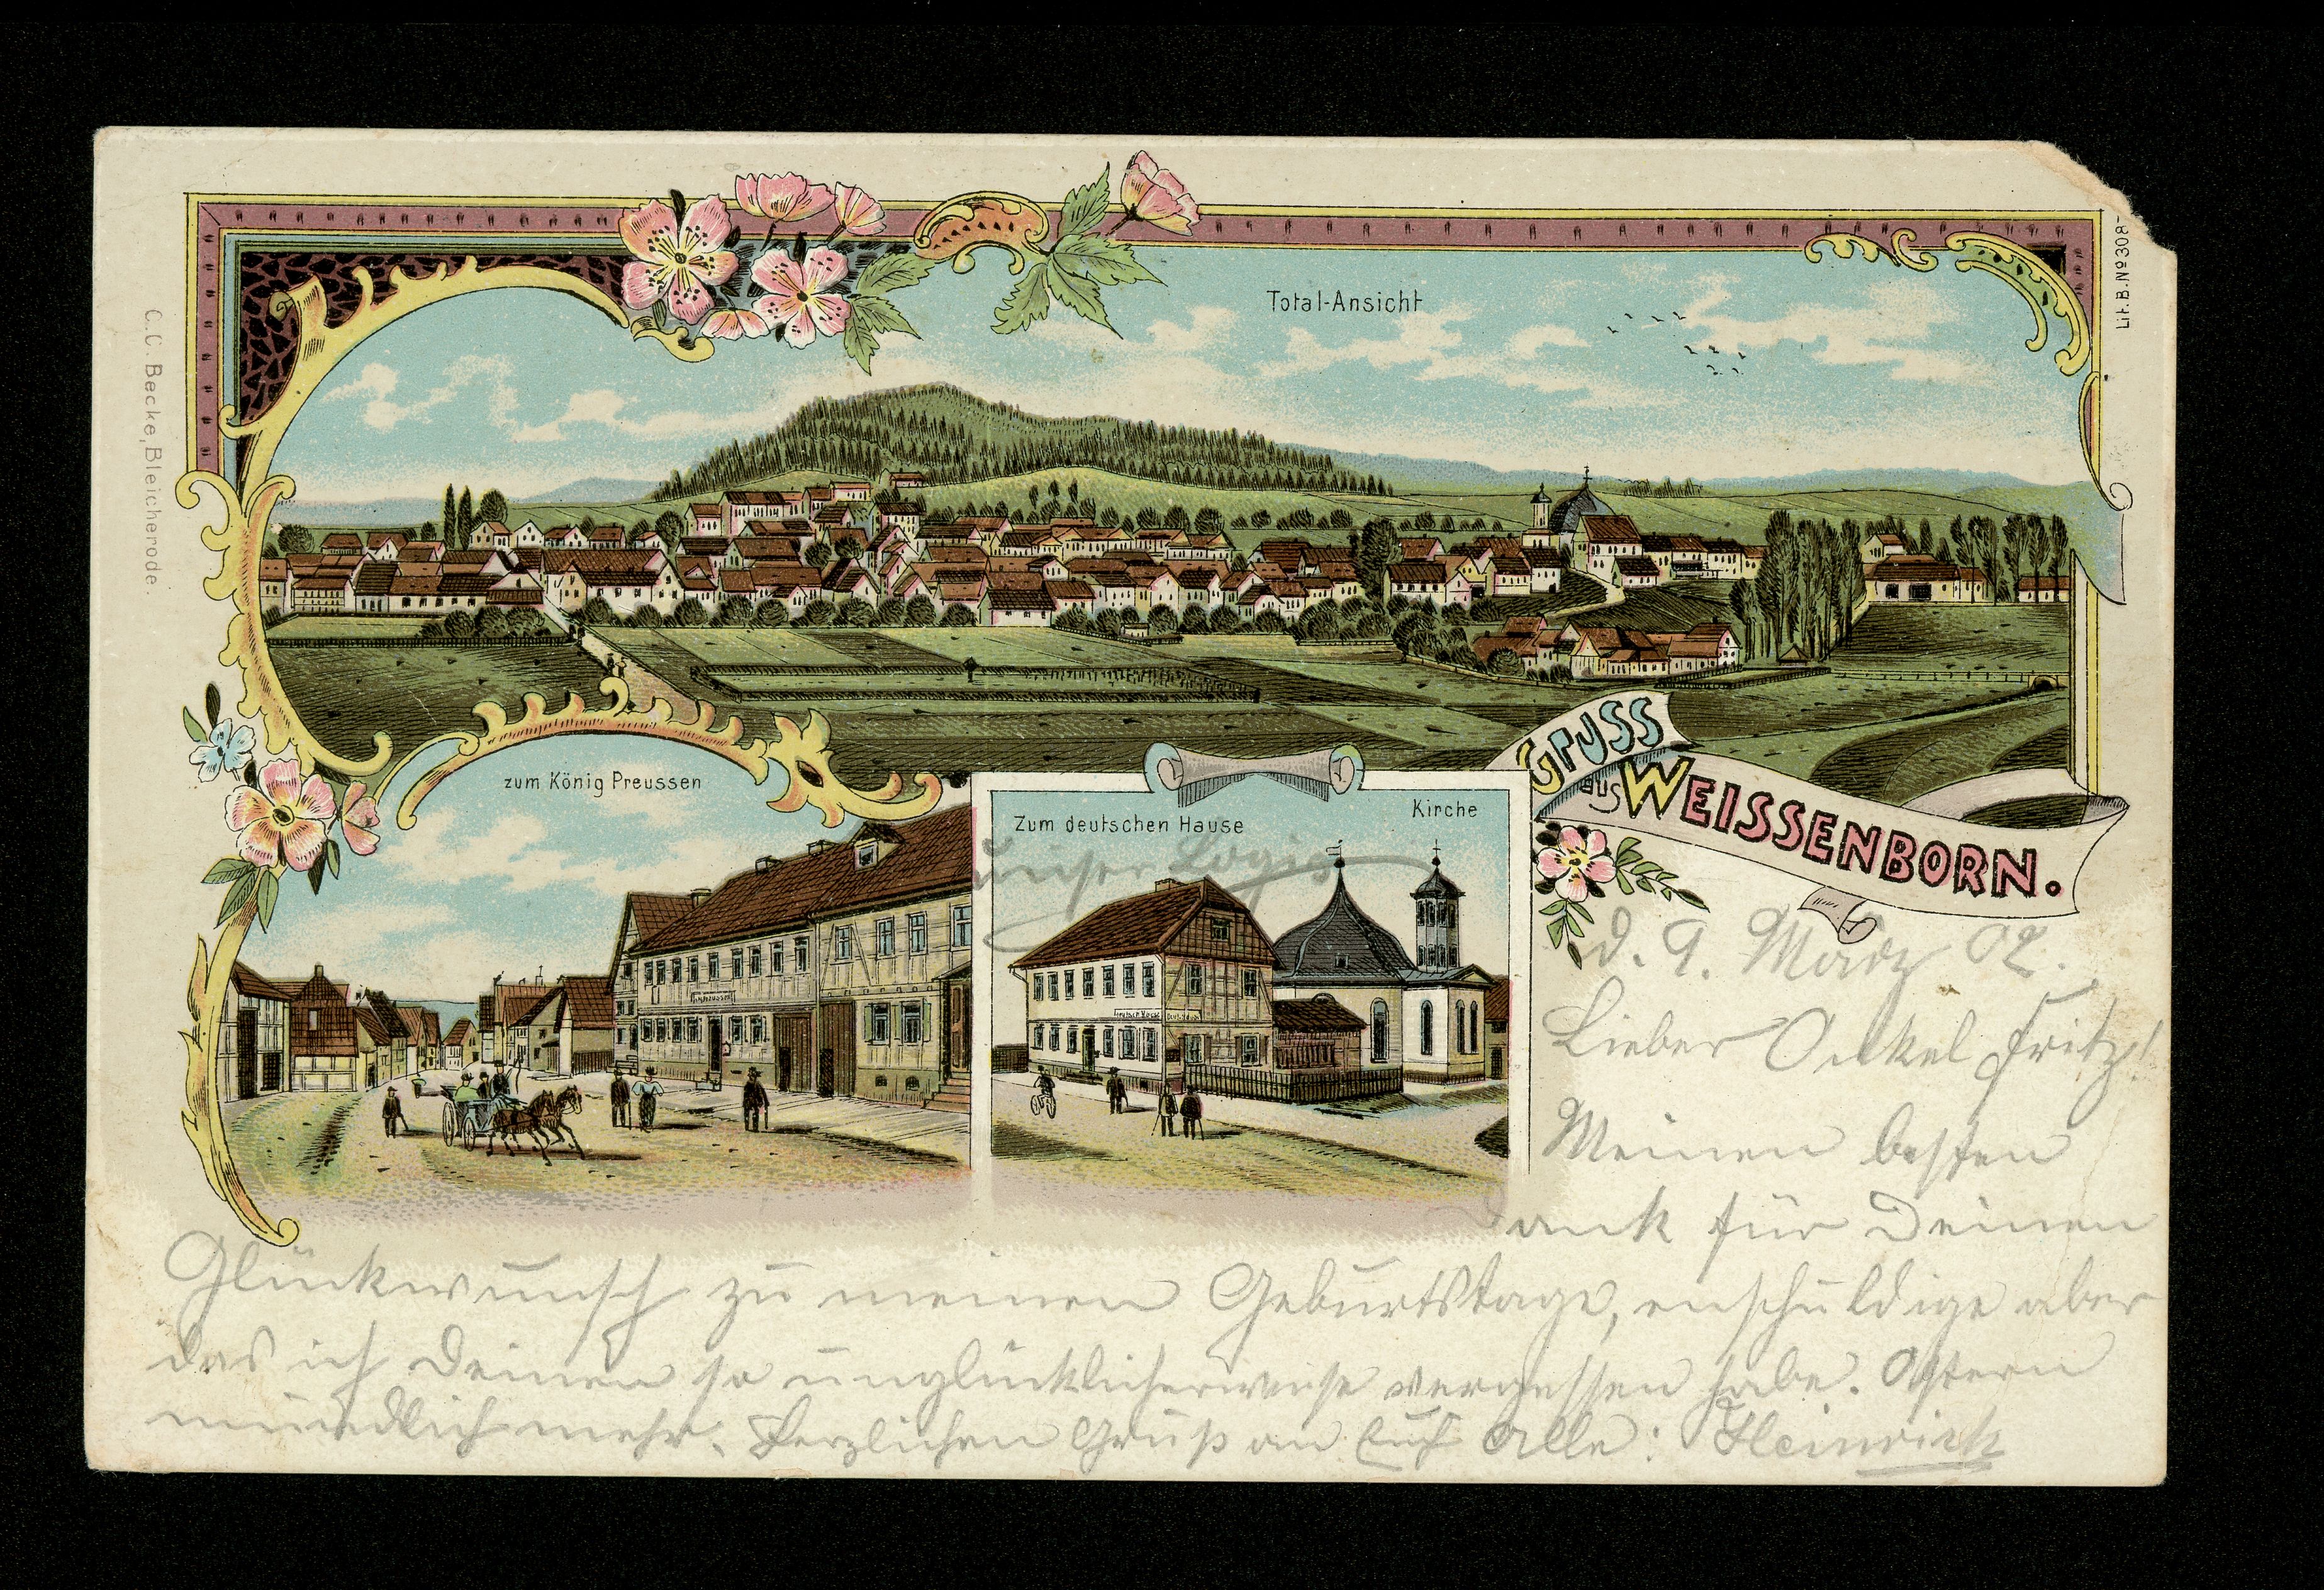 Total-Ansicht
Lit.B.Nº308
C.C. Becke, Bleicherode.
zum König Preussen
Zum deutschen Hause
Kirche
unser Logis
GRUSS
aus WEISSENBORN.
d. 9. März 02.
Lieber Onkel Fritz!
Meinen besten
Dank für Deinen
Glückwunsch zu meinen Geburtstage, enschuldige aber
das ich Deinen so unglücklicherweise vergessen habe. Ostern
mündlich mehr. Herzlichen Gruß an Euch Alle: Heinrich